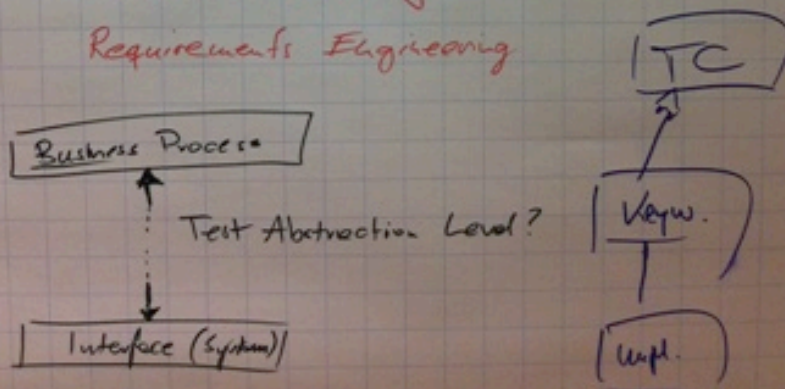 Requirements Engineering
TC
Business Process
Test Abstraction Level?
Keyw.
Interface (System)
Impl.